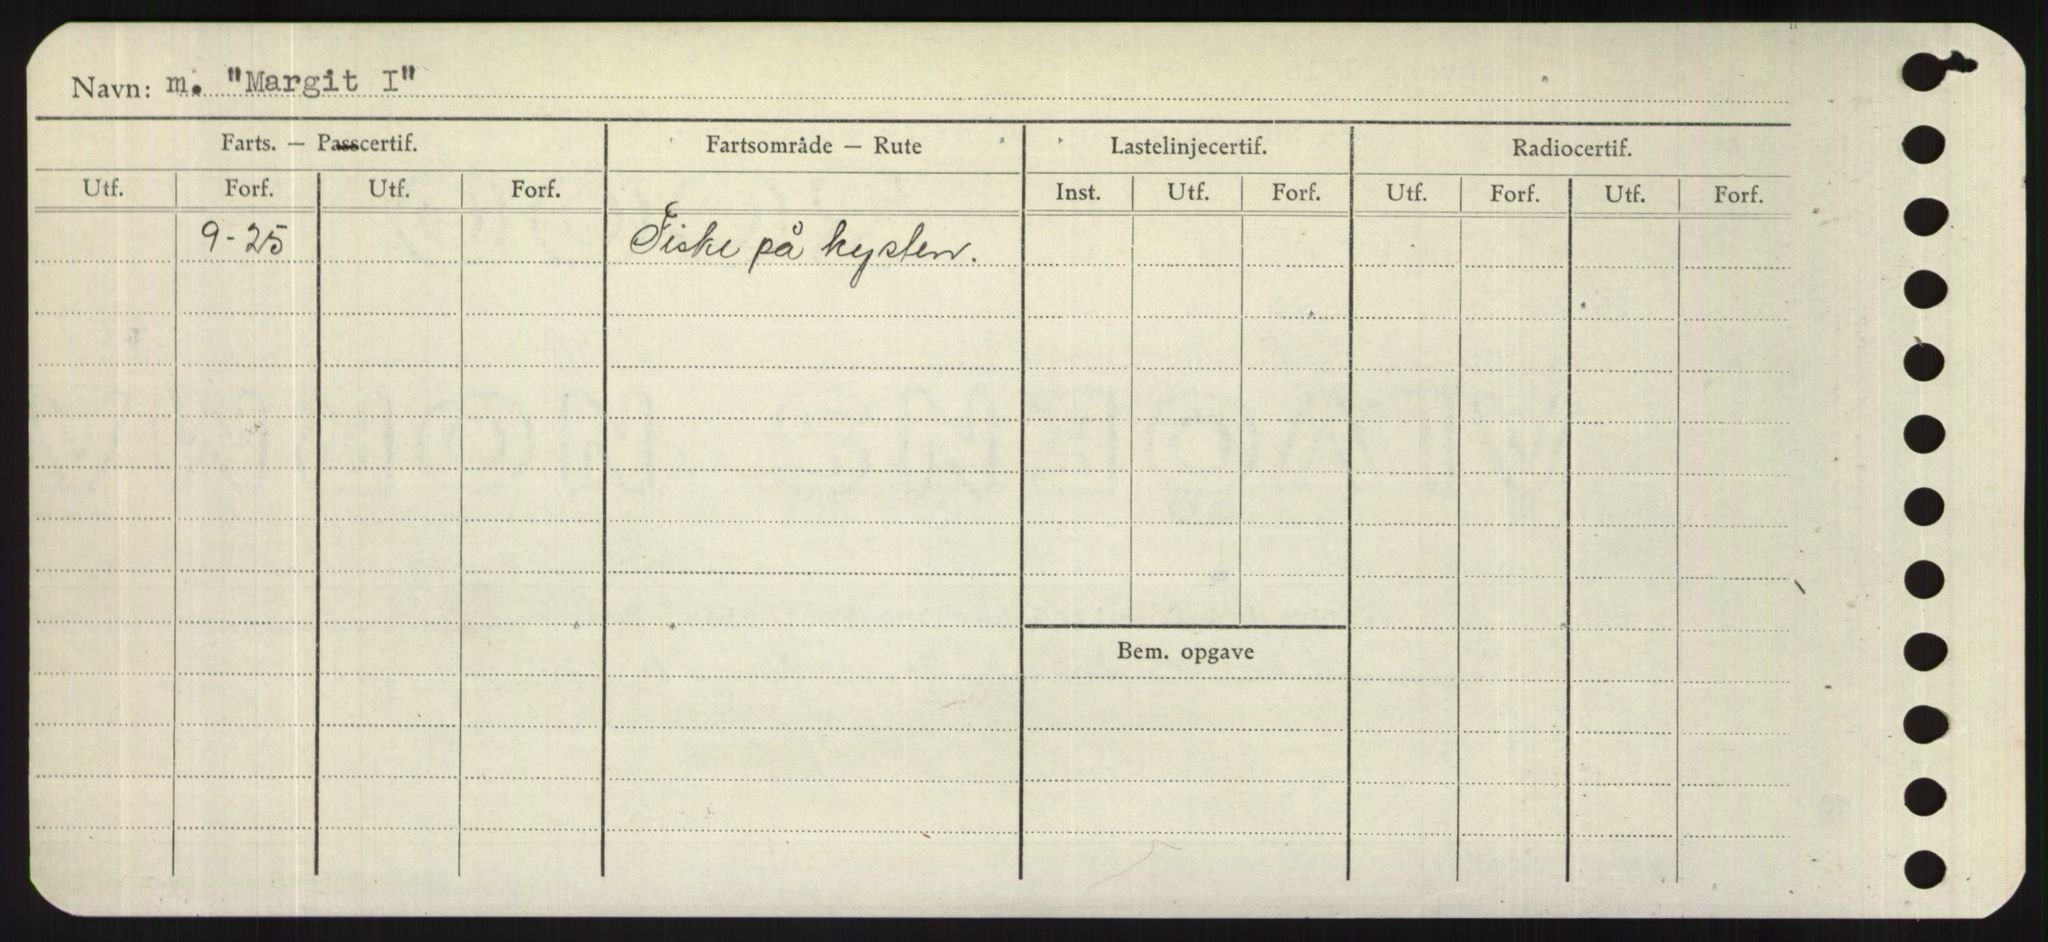 Navn: m. "Margit I"
Farts. — Passcertif. Fartsområde — Rute Lastelinjecertif. Radiocertif.
Utf. Forf. Utf. Forf. Inst. Utf. Forf. Utf. Forf. Utf. Forf.
9-25 Fiske på kysten.
Bem. opgave